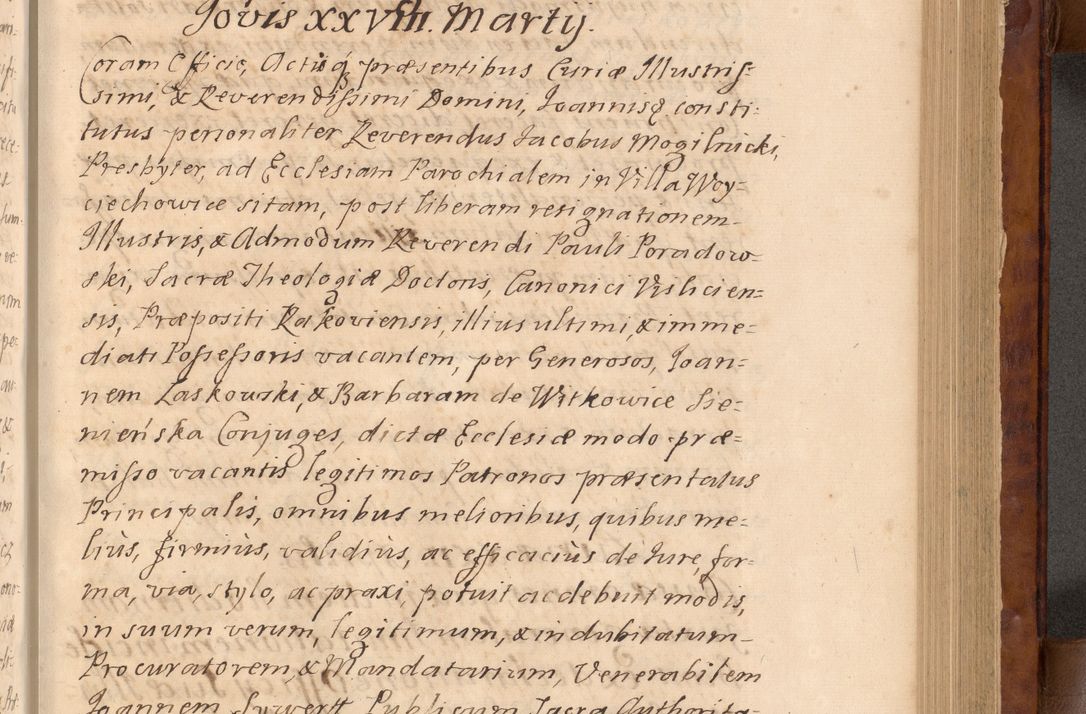 Jovis XXVIII. Martij.
Coram Officio, Actisq́ præsentibus Curiæ Illustris-
simi, & Reverendissimi Domini, Joannisq́ consti-
tutus personaliter Reverendus Jacobus Mogilnicki,
Presbyter, ad Ecclesiam Parochialem in Villa Woy-
ciechowice sitam, post liberam resignationem
Illustris, & Admodum Reverendi Pauli Poradow-
ski, Sacræ Theologiæ Doctoris, Canonici Vislicien-
sis, Præpositi Rakoviensis, illius ultimi, & imme-
diati Possessoris vacantem, per Generosos, Joan-
nem Laskowski, & Barbaram de Witkowice Sie-
nieńska Conjuges, dictæ Ecclesiæ modo præ-
misso vacantis legitimos Patronos præsentatus
Principalis, omnibus melioribus, quibus me-
liùs, firmiùs, validiùs, ac efficaciùs de Jure, for-
ma, via, stylo, ac praxi, potuit ac debuit modis,
in suum verum, legitimum, & indubitatum
Procuratorem, & Mandatarium, Venerabilem
Joannem Sywertt Publicum Sacra Authorita-